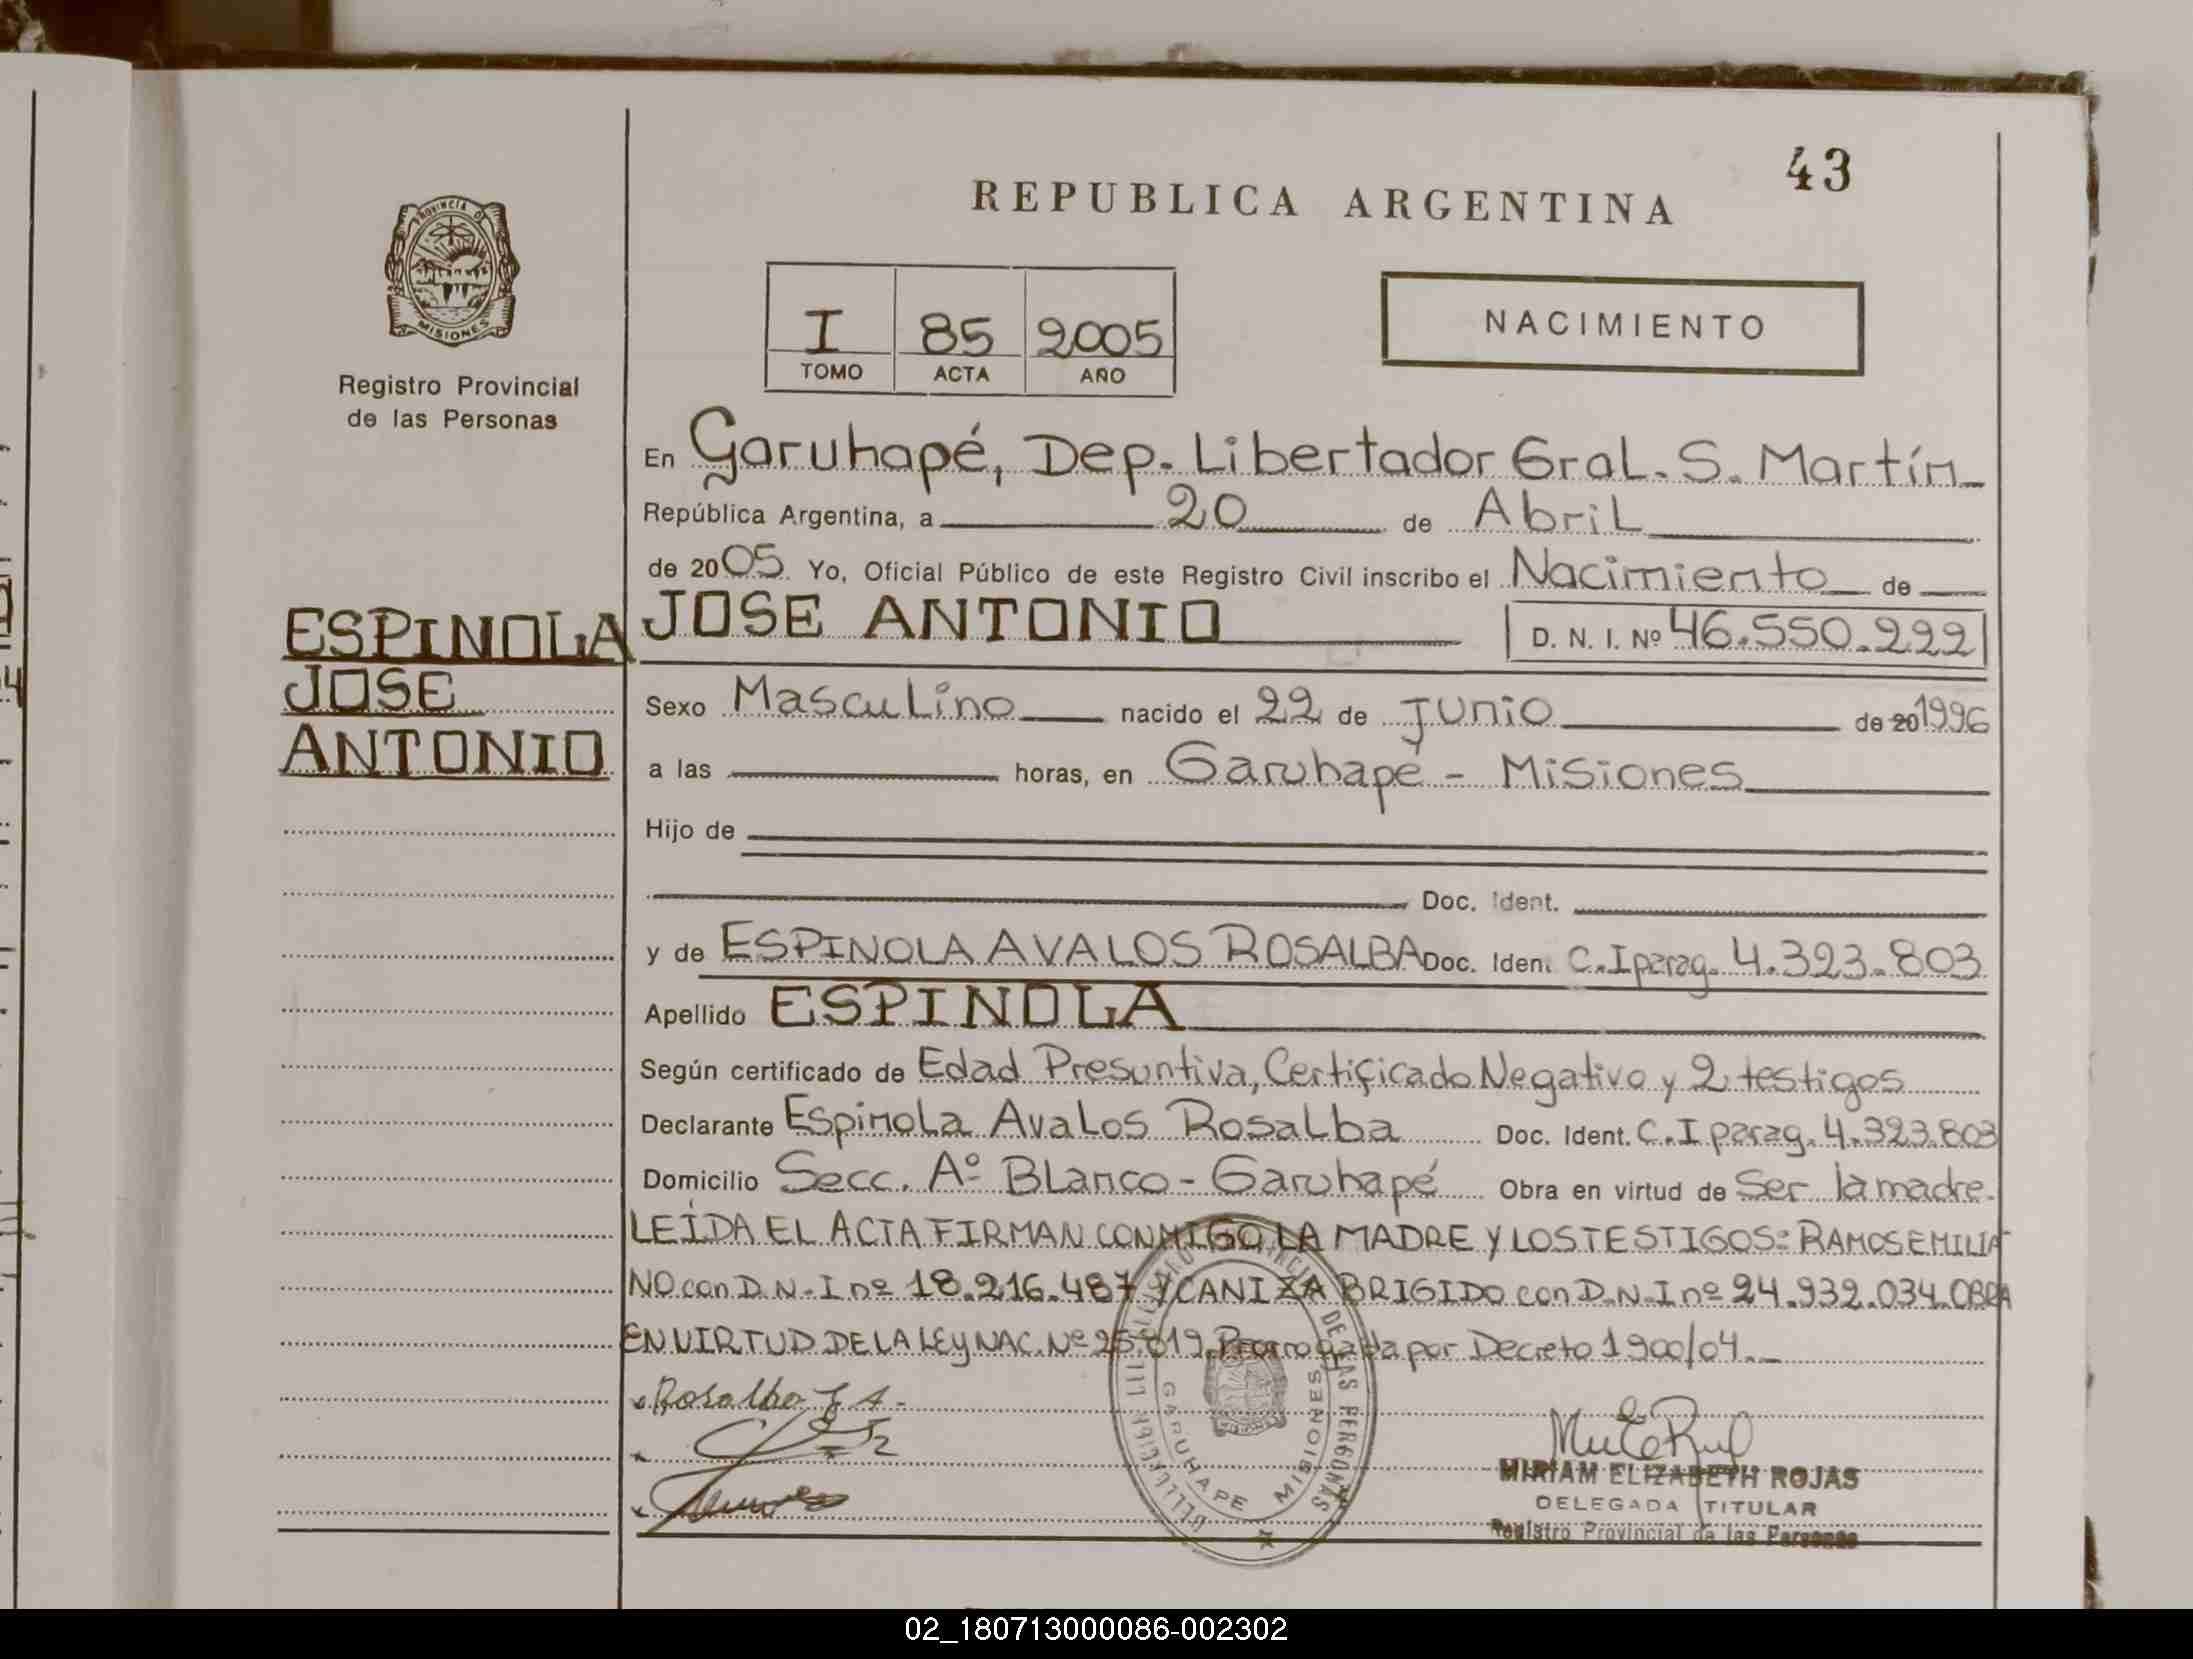 43
REPUBLICA ARGENTINA
PROVINCIA DE
MISIONES
Registro Provincial
de las Personas
I 85 2005
TOMO ACTA AÑO
NACIMIENTO
En Garuhapé, Dep. Libertador Gral. S. Martín
República Argentina, a 20 de Abril
de 2005 Yo, Oficial Público de este Registro Civil inscribo el Nacimiento de
ESPINOLA JOSE ANTONIO D. N. I. Nº 46.550.222
JOSE
ANTONIO
Sexo Masculino nacido el 22 de junio de 20 1996
a las horas, en Garuhapé - Misiones
Hijo de
Doc. Ident.
y de ESPINOLA AVALOS ROSALBA Doc. Iden. C.I parag. 4.323.803
Apellido ESPINOLA
Según certificado de Edad Presuntiva, Certificado Negativo y 2 testigos
Declarante Espinola Avalos Rosalba Doc. Ident. C.I parag. 4.323.803
Domicilio Secc. Aº Blanco - Garuhapé Obra en virtud de Ser la madre.
LEÍDA EL ACTA FIRMAN CONMIGO LA MADRE Y LOS TESTIGOS: RAMOS EMILIA
NO con D.N.I nº 18.216.487 Y CANIZA BRIGIDO con D.N.I nº 24.932.034. OBRA
EN VIRTUD DE LA LEY NAC. Nº 25.819. Prorrogada por Decreto 1900/04.
Rosalba E A.
DE LAS PERSONAS
GARUHAPE MISIONES
MIRIAM ELIZABETH ROJAS
DELEGADA TITULAR
Registro Provincial de las Personas
02_180713000086-002302